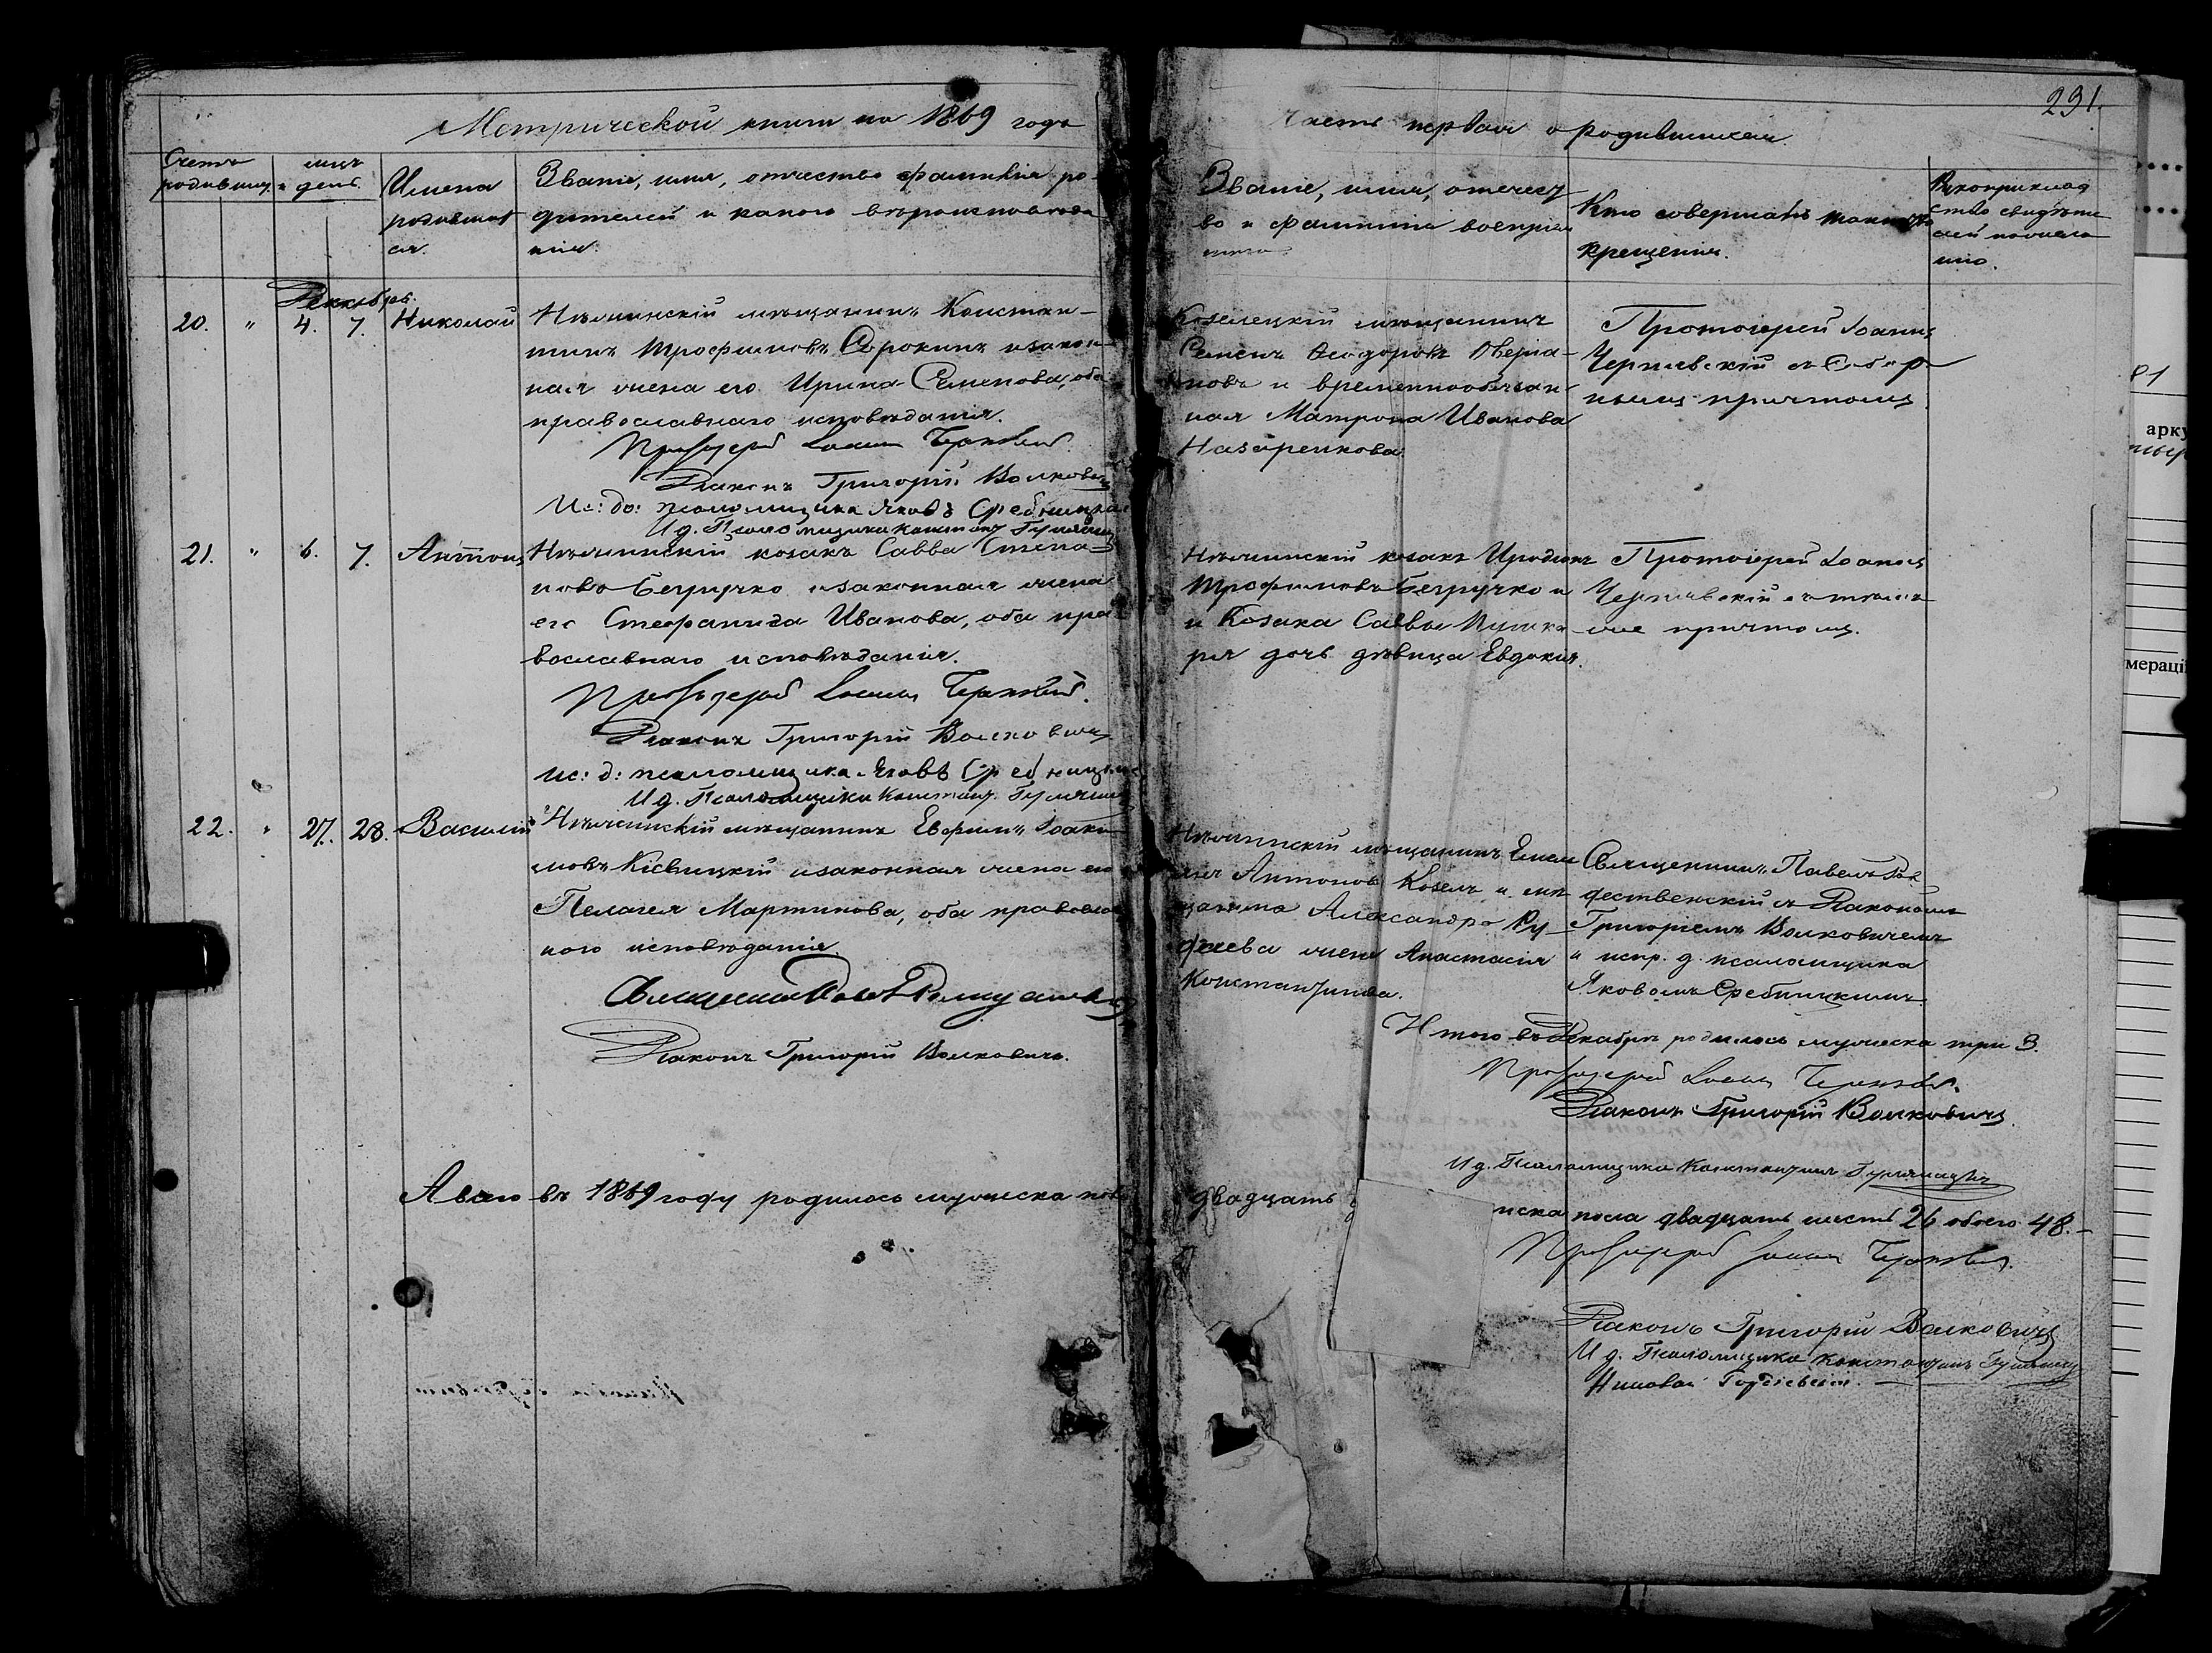 Метрической книги на 1869 годъ
Часть первая о родившихся.
231.
Счетъ родившихъ
мцъ и день.
Имена родившихся.
Званіе, имя, отчество фамилія родителей и какого вѣроисповѣданія.
Званіе, имя, отечество и фамилія воспріем
Кто совершалъ таинство крещенія.
Рукоприкладство свидѣтелей
Декабрь.
20. " 4. 7. Николай
Нѣжинскій мѣщанинъ Констан-
тинъ Трофимовъ Сорокинъ и закон
ная жена его Ирина Семенова, оба
православнаго исповѣданія.
Протоіерей Іоаннъ Чернявскій
Діаконъ Григорій Волковичъ
Ис: до: псаломщика Яковъ Сребницкій
И д. Псаломщика Констант.
Козелецкій мѣщанинъ
Семенъ Ѳеодоровъ Аверіа-
новъ и временнообязан-
ная Матрона Иванова
Назаренкова
Протоіерей Іоаннъ
Чернявскій съ Собор-
нымъ причтомъ
21. " 6. 7. Антонъ
Нѣжинскій козакъ Савва Степа-
новъ Безручко и законная жена
его Стефанида Иванова, оба пра-
вославнаго исповѣданія.
Протоіерей Іоаннъ Чернявскій.
Діаконъ Григорій Волковичъ
Ис: д: псаломщика Яковъ Сребницкій
И д. Псаломщика Констант.
Нѣжинскій козакъ Иродіонъ
Трофимовъ Безручко и
и Козака Саввы
дочь дѣвица Евдокія.
Протоіерей Іоаннъ
Чернявскій съ
причтомъ.
22. " 27. 28. Василій
Нѣжинскій мѣщанинъ Евфимъ Іоаки-
мовъ Кіевицкій и законная жена его
Пелагея Мартинова, оба православ
ного исповѣданія
Священникъ Павелъ
Діаконъ Григорій Волковичъ.
Нѣжинскій мѣщанинъ Емель
янъ Антоновъ Козелъ и мѣ
щанина Александра Ру-
жена Анастасія
Константинова.
Священникъ Павелъ
съ Діакономъ
Григоріемъ Волковичемъ
и испр. д. псаломщика
Яковомъ Сребницкимъ.
Итого въ Декабрѣ родилось мужеска три 3.
Протоіерей Іоаннъ Чернявскій.
Діаконъ Григорій Волковичъ.
И д. Псаломщика Константинъ
А всего въ 1869 году родилось мужеска пола
двадцать
нска пола двадцать шесть 26 обоего 48.-
Протоіерей Іоаннъ Чернявскій.
Діаконъ Григорій Волковичъ
И д. Псаломщика Константинъ
арку
мераці